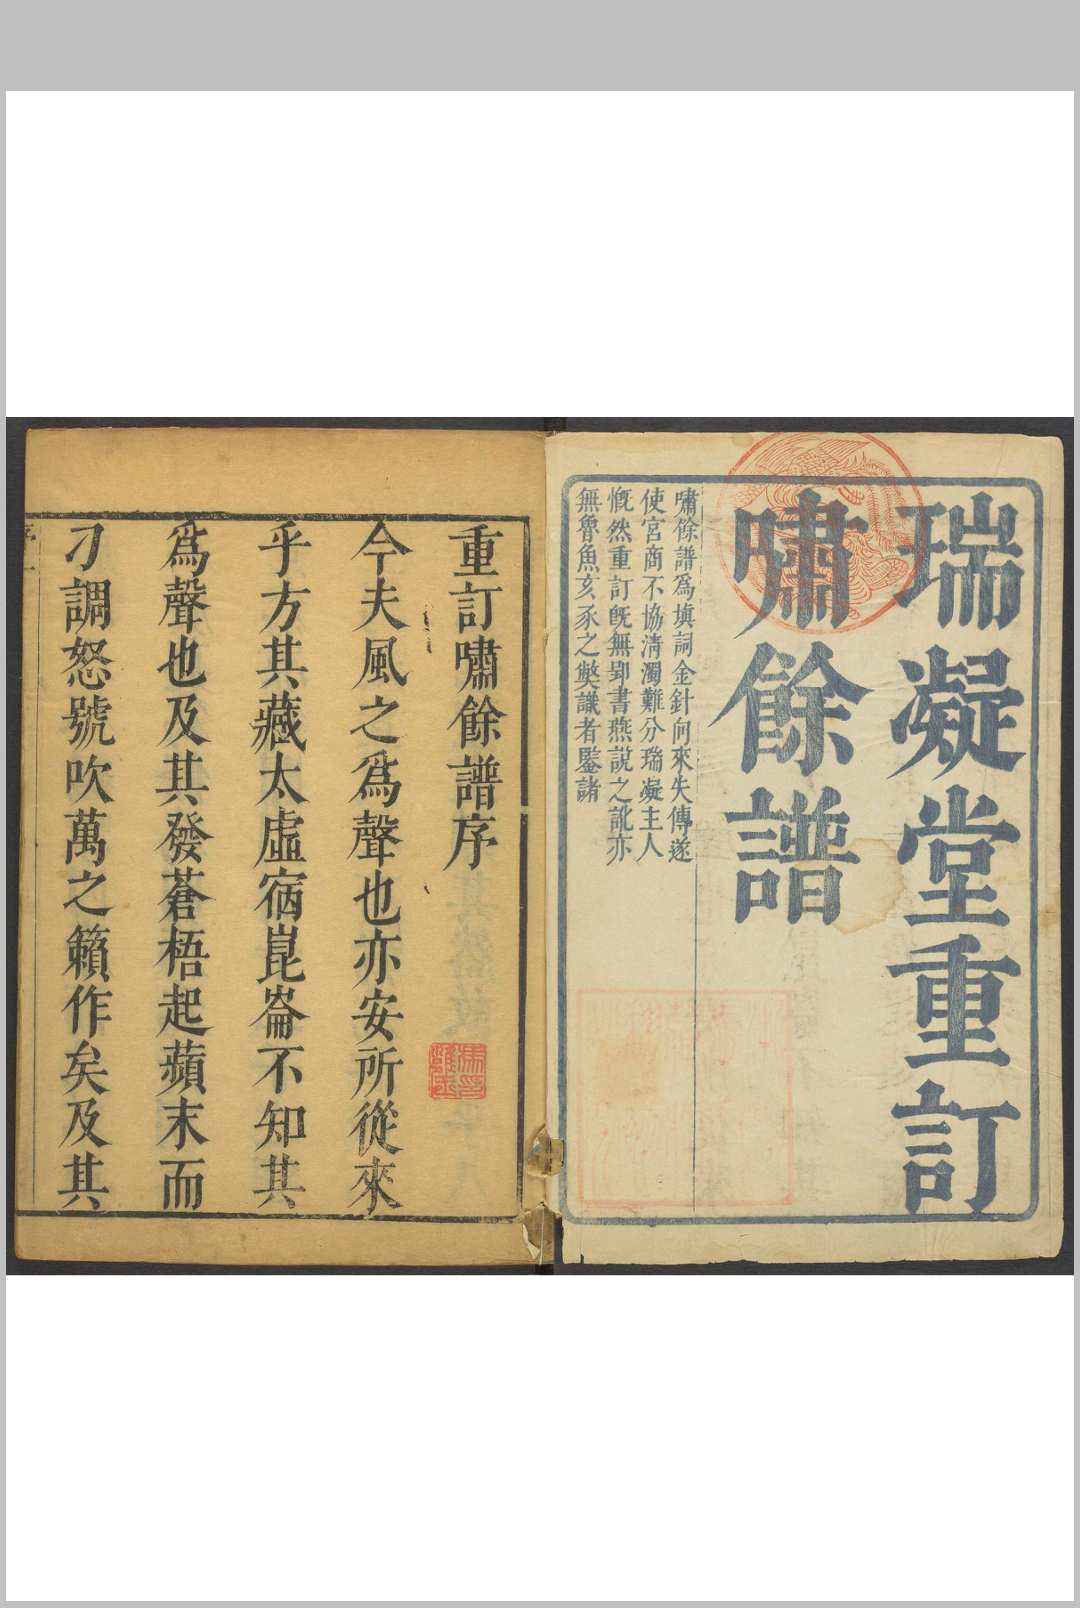 瑞凝堂重訂
嘯餘譜
嘯餘譜爲塡詞金針向來失傳遂
使宮商不協淸濁難分瑞凝主人
慨然重訂旣無郢書燕說之訛亦
無魯魚亥豕之獘識者鑒諸
重訂嘯餘譜序
今夫風之爲聲也亦安所從來
乎方其藏太虛宿崑崙不知其
爲聲也及其發蒼梧起蘋末而
刁調怒號吹萬之籟作矣及其